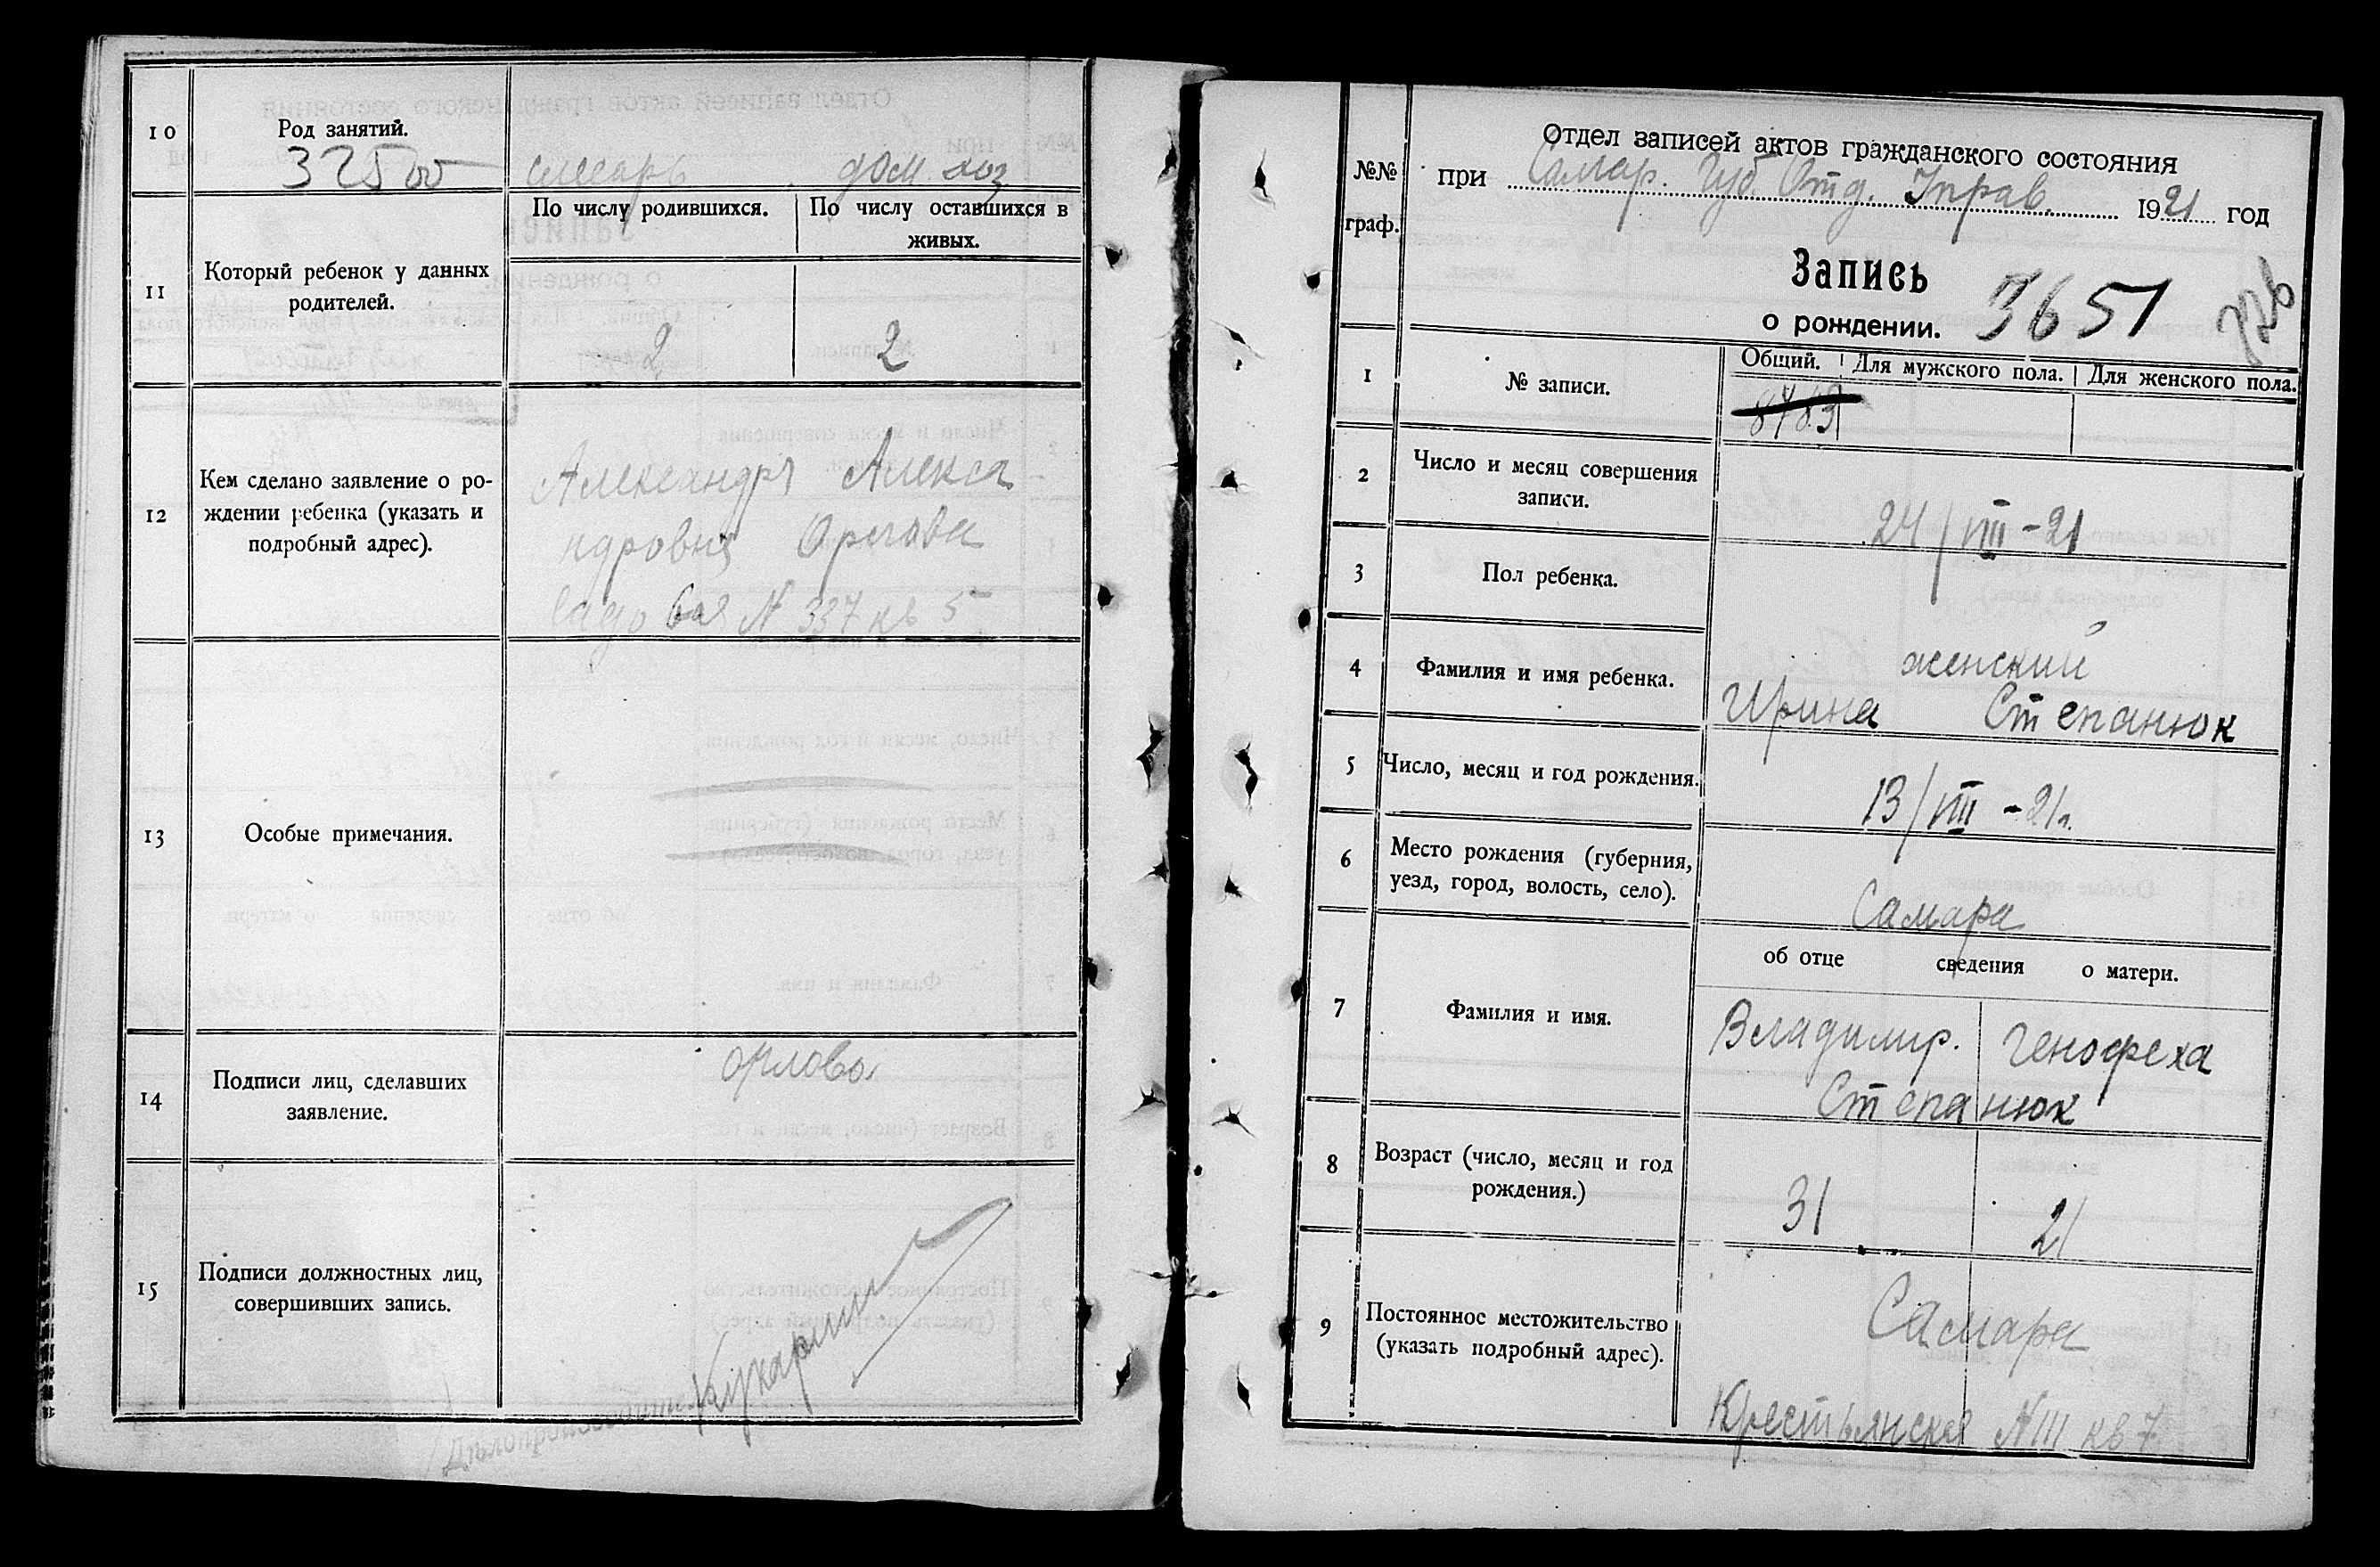 10
Род занятий.
32500
слесарь дом. хоз
11
Который ребенок у данных
родителей.
По числу родившихся.
По числу оставшихся в
живых.
2
2
12
Кем сделано заявление о ро-
ждении ребенка (указать и
подробный адрес).
Александра Алекса
ндровна Орлова
Садовая N 337 кв 5
13
Особые примечания.
14
Подписи лиц, сделавших
заявление.
орлова
15
Подписи должностных лиц,
совершивших запись.
№№
граф.
Отдел записей актов гражданского состояния
при Самар. Губ. Отд. Управ. 1921 год
Запись
о рождении.
3651
226
1
№ записи.
Общий. Для мужского пола. Для женского пола.
8783
2
Число и месяц совершения
записи.
24/VIII-21
3
Пол ребенка.
женский
4
Фамилия и имя ребенка.
Ирина Степанюк
5
Число, месяц и год рождения.
13/VIII-21г.
6
Место рождения (губерния,
уезд, город, волость, село).
Самара
7
Фамилия и имя.
об отце сведения о матери.
Владимир.
Генофеха
Степанюк
8
Возраст (число, месяц и год
рождения.)
31
21
9
Постоянное местожительство
(указать подробный адрес).
Самара
Крестьянская N 111 кв 7